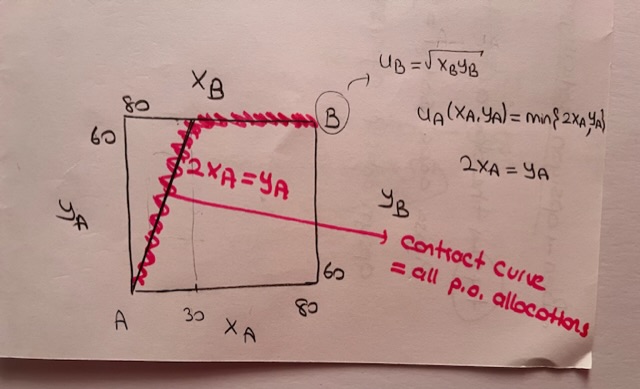 X_B
80
60
B
u_B = √x_B y_B
u_A(x_A, y_A) = min{2x_A, y_A}
2x_A = y_A
2x_A = y_A
y_A
y_B
contract curve
= all p.o. allocations
60
A
30
x_A
80